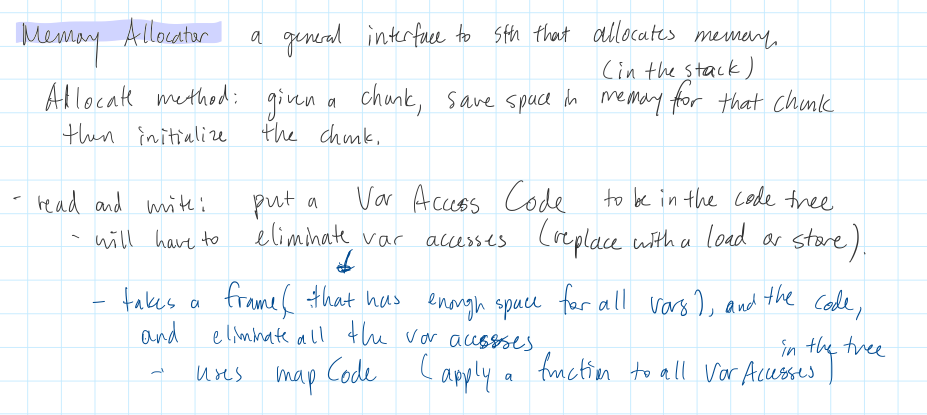 Memory Allocator a general interface to sth that allocates memory.
(in the stack)
Allocate method: given a chunk, save space in memory for that chunk
then initialize the chunk.
- read and write: put a Var Access Code to be in the code tree
- will have to eliminate var accesses (replace with a load or store).
- takes a frame (that has enough space for all vars), and the code,
and eliminate all the var accesses
in the tree
- uses mapCode (apply a function to all Var Accesses)